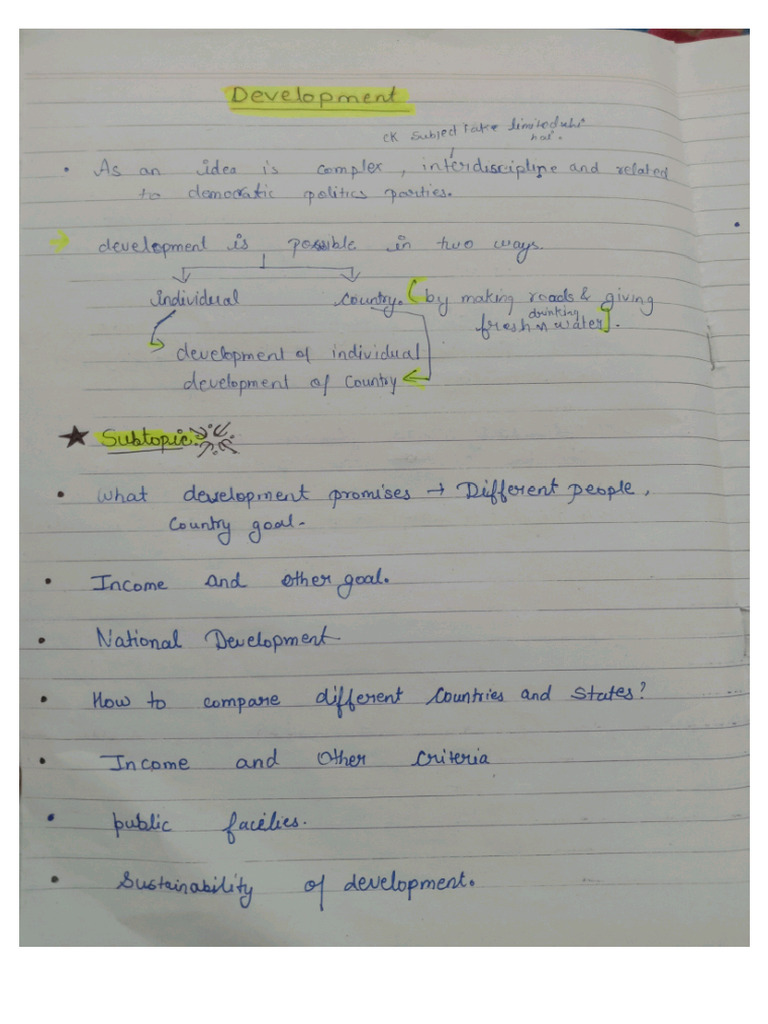 Development
ek subject take limited nhi
hai.
• As an idea is complex, interdiscipline and related
to democratic politics parties.
→ development is possible in two ways.
individual country. (by making roads & giving
fresh drinking water].
development of individual
development of country
★ Subtopic
• What development promises → Different people,
country goal.
• Income and other goal.
• National Development
• How to compare different countries and states?
• Income and other criteria
• public facilies.
• Sustainability of development.